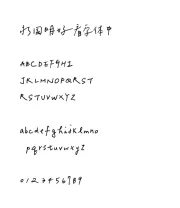 好看字体
ABCDEFGHI
JKLMNOPQRST
RSTUVWXYZ
abcdefghijklmno
pqrstuvwxyz
0123456789